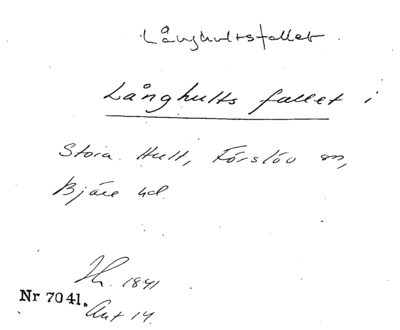 Långhultsfallet
Långhults fallet i
Stora Hult, Förslöv sn,
Bjäre hd
1841
Nr 7041.
Akt 14.